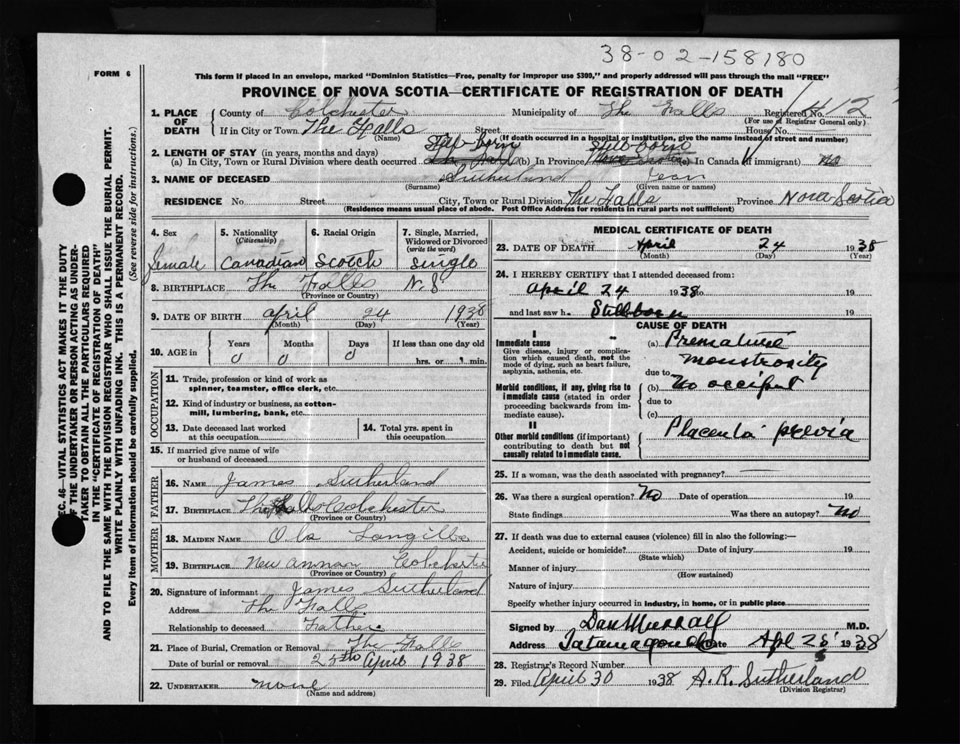 38-02-158180
FORM 6
This form if placed in an envelope, marked "Dominion Statistics—Free, penalty for improper use $300," and properly addressed will pass through the mail "FREE"
PROVINCE OF NOVA SCOTIA—CERTIFICATE OF REGISTRATION OF DEATH
1. PLACE OF DEATH County of Colchester Municipality of The Falls Registered No.
(For use of Registrar General only)
If in City or Town The Falls Street House No.
(Name) (If death occurred in a hospital or institution, give the name instead of street and number)
Still-born Still-born
2. LENGTH OF STAY (in years, months and days)
(a) In City, Town or Rural Division where death occurred (b) In Province (c) In Canada (if immigrant) no
3. NAME OF DECEASED Sutherland Jean
(Surname) (Given name or names)
RESIDENCE No. Street City, Town or Rural Division The Falls Province Nova Scotia
(Residence means usual place of abode. Post Office Address for residents in rural parts not sufficient)
4. Sex 5. Nationality (Citizenship) 6. Racial Origin 7. Single, Married, Widowed or Divorced (write the word)
Female Canadian Scotch Single
8. BIRTHPLACE The Falls N.S
(Province or Country)
9. DATE OF BIRTH April 24 1938
(Month) (Day) (Year)
10. AGE in Years Months Days If less than one day old
0 0 0 hrs. or min.
OCCUPATION
11. Trade, profession or kind of work as spinner, teamster, office clerk, etc.
12. Kind of industry or business, as cotton-mill, lumbering, bank, etc.
13. Date deceased last worked at this occupation
14. Total yrs. spent in this occupation
15. If married give name of wife or husband of deceased
FATHER
16. NAME James Sutherland
17. BIRTHPLACE The Falls Colchester
(Province or Country)
MOTHER
18. MAIDEN NAME Ola Langille
19. BIRTHPLACE New Annan Colchester
(Province or Country)
20. Signature of informant James Sutherland
Address The Falls.
Relationship to deceased Father
21. Place of Burial, Cremation or Removal The Falls
Date of burial or removal 25th April 1938
22. UNDERTAKER none
(Name and address)
MEDICAL CERTIFICATE OF DEATH
23. DATE OF DEATH April 24 1938
(Month) (Day) (Year)
24. I HEREBY CERTIFY that I attended deceased from:
April 24 1938 to 19
and last saw h Stillborn 19
CAUSE OF DEATH
I
Immediate cause
Give disease, injury or complication which caused death, not the mode of dying, such as heart failure, asphyxia, asthenia, etc.
(a) Premature
monstrosity
due to
Morbid conditions, if any, giving rise to immediate cause (stated in order proceeding backwards from immediate cause).
(b) No occiput
due to
(c)
II
Other morbid conditions (if important) contributing to death but not causally related to immediate cause.
Placenta previa
25. If a woman, was the death associated with pregnancy?
26. Was there a surgical operation? No Date of operation 19
State findings Was there an autopsy? No
27. If death was due to external causes (violence) fill in also the following:—
Accident, suicide or homicide? Date of injury 19
(State which)
Manner of injury
(How sustained)
Nature of injury
Specify whether injury occurred in industry, in home, or in public place
Signed by Dan Murray M.D.
Address Tatamagouche Date Apl 25 1938
28. Registrar's Record Number
29. Filed April 30 1938 A. R. Sutherland
(Division Registrar)
SEC. 46—VITAL STATISTICS ACT MAKES IT THE DUTY
OF THE UNDERTAKER OR PERSON ACTING AS UNDER-
TAKER TO OBTAIN ALL THE PARTICULARS REQUIRED
IN THE "CERTIFICATE OF REGISTRATION OF DEATH"
AND TO FILE THE SAME WITH THE DIVISION REGISTRAR WHO SHALL ISSUE THE BURIAL PERMIT.
WRITE PLAINLY WITH UNFADING INK. THIS IS A PERMANENT RECORD.
Every item of information should be carefully supplied. (See reverse side for instructions.)